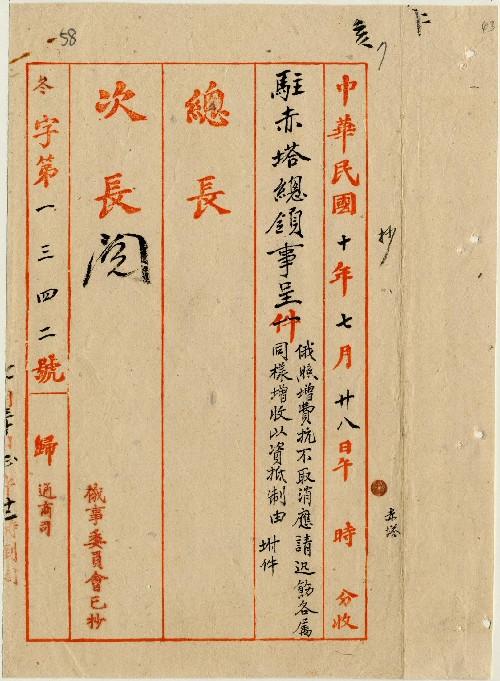 58
43
亥
抄
赤塔
中華民國十年七月廿八日午 時 分收
駐赤塔總領事呈 件
俄照增費抗不取消應請迅飭各屬
同樣增收以資抵制由 坿件
總長
次長 閱
俄事委員會已抄
冬字第一三四二號 歸 通商司